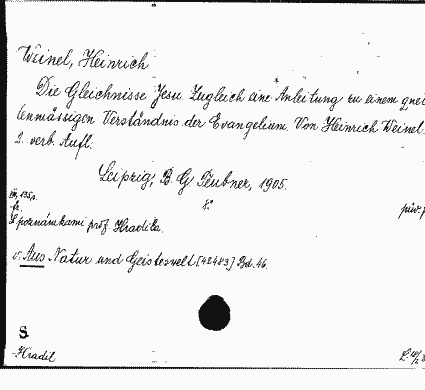 Weinel, Heinrich
Die Gleichnisse Jesu. Zugleich eine Anleitung zu einem quel
lenmässigen Verständnis der Evangelien. Von Heinrich Weinel.
2. verb. Aufl.
Leipzig, B. G. Teubner, 1905.
8°
br.
S poznámkami prof. Hradila.
Aus Natur und Geisteswelt [42483] Bd. 46.
S
Hradil